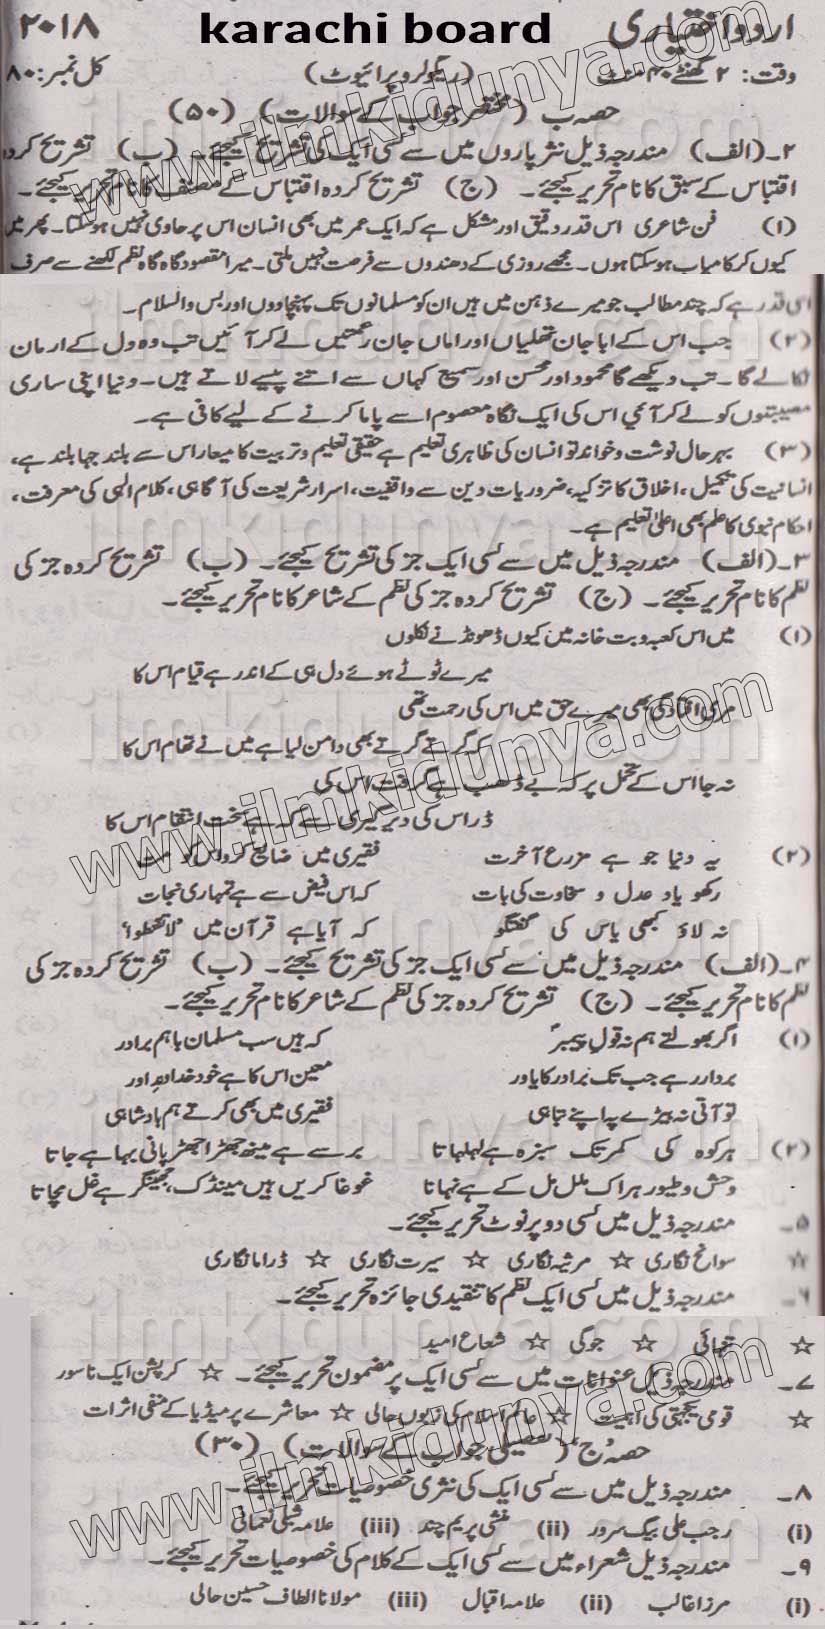 karachi board
اردو اختیاری ۲۰۱۸
وقت: ۲ گھنٹے ۴۰ منٹ (ریگولر و پرائیوٹ) کل نمبر: ۸۰
حصہ ب (مختصر جواب کے سوالات) (۵۰)
۲۔ (الف) مندرجہ ذیل نثر پاروں میں سے کسی ایک کی تشریح کیجئے۔ (ب) تشریح کردہ
اقتباس کے سبق کا نام تحریر کیجئے۔ (ج) تشریح کردہ اقتباس کے مصنف کا نام تحریر کیجئے۔
(۱) فن شاعری اس قدر دقیق اور مشکل ہے کہ ایک عمر میں بھی انسان اس پر حاوی نہیں ہو سکتا۔ پھر میں
کیوں کر کامیاب ہو سکتا ہوں۔ مجھے روزی کے دھندوں سے فرصت نہیں ملتی۔ میرا مقصود گاہ گاہ نظم لکھنے سے صرف
اسی قدر ہے کہ چند مطالب جو میرے ذہن میں ہیں ان کو مسلمانوں تک پہنچا دوں اور بس والسلام۔
(۲) جب اس کے ابا جان تھلیاں اور اماں جان نعمتیں لے کر آئیں تب وہ دل کے ارمان
نکالے گا۔ تب دیکھے گا محمود اور محسن اور سمیع کہاں سے اتنے پیسے لاتے ہیں۔ دنیا اپنی ساری
مصیبتوں کو لے کر آئی اس کی ایک نگاہ معصوم اسے پاما کرنے کے لیے کافی ہے۔
(۳) بہر حال نوشت و خواند تو انسان کی ظاہری تعلیم ہے حقیقی تعلیم و تربیت کا معیار اس سے بلند جہا بلند ہے،
انسانیت کی تکمیل، اخلاق کا تزکیہ، ضروریات دین سے واقفیت، اسرار شریعت کی آگاہی، کلام الٰہی کی معرفت،
احکام نبوی کا علم بھی اعلیٰ تعلیم ہے۔
۳۔ (الف) مندرجہ ذیل میں سے کسی ایک جز کی تشریح کیجئے۔ (ب) تشریح کردہ جز کی
نظم کا نام تحریر کیجئے۔ (ج) تشریح کردہ جز کی نظم کے شاعر کا نام تحریر کیجئے۔
(۱) میں اس کعبہ و بت خانہ میں کیوں ڈھونڈنے نکلوں
میرے ٹوٹے ہوئے دل ہی کے اندر ہے قیام اس کا
مری افتادگی بھی میرے حق میں اس کی رحمت تھی
کہ گرتے گرتے بھی دامن لیا ہے میں نے تھام اس کا
نہ جا اس کے تحمل پر کہ بے ڈھب ہے گرفت اس کی
ڈر اس کی دیر گیری سے کہ ہے سخت انتقام اس کا
(۲) یہ دنیا جو ہے مزرع آخرت فقیری میں ضائع کرو اس کو مت
رکھو یاد عدل و سخاوت کی بات کہ اس فیض سے ہے تمہاری نجات
نہ لاؤ کبھی یاس کی گفتگو کہ آیا ہے قرآن میں 'لا تقنطوا'
۴۔ (الف) مندرجہ ذیل میں سے کسی ایک جز کی تشریح کیجئے۔ (ب) تشریح کردہ جز کی
نظم کا نام تحریر کیجئے۔ (ج) تشریح کردہ جز کی نظم کے شاعر کا نام تحریر کیجئے۔
(۱) اگر بھولتے ہم نہ قول پیمبرؐ کہ ہیں سب مسلمان باہم برادر
بردار ہے جب تک برادر کا یاور معین اس کا ہے خود خداوند اور
تو آتی نہ بیڑے پہ اپنے تباہی فقیری میں بھی کرتے ہم بادشاہی
(۲) ہر کوہ کی کمر تک سبزہ ہے لہلہاتا برسے ہے مینھ جھڑا جھڑ پانی بہا ہے جاتا
وحش و طیور ہر اک مل مل کے ہے نہاتا غوغا کریں ہیں مینڈک، جھینگر ہے غل مچاتا
۵۔ مندرجہ ذیل میں کسی دو پر نوٹ تحریر کیجئے۔
☆ سوانح نگاری ☆ مرثیہ نگاری ☆ سیرت نگاری ☆ ڈراما نگاری
۶۔ مندرجہ ذیل میں کسی ایک نظم کا تنقیدی جائزہ تحریر کیجئے۔
☆ تنہائی ☆ جوگی ☆ شعاع امید
۷۔ مندرجہ ذیل عنوانات میں سے کسی ایک پر مضمون تحریر کیجئے۔ ☆ کرپشن ایک ناسور
☆ قومی یکجہتی کی اہمیت ☆ عالم اسلام کی زبوں حالی ☆ معاشرے پر میڈیا کے منفی اثرات
حصہ ج (تفصیلی جواب کے سوالات) (۳۰)
۸۔ مندرجہ ذیل میں سے کسی ایک کی نثری خصوصیات تحریر کیجئے۔
(i) رجب علی بیگ سرور (ii) منشی پریم چند (iii) علامہ شبلی نعمانی
۹۔ مندرجہ ذیل شعراء میں سے کسی ایک کے کلام کی خصوصیات تحریر کیجئے۔
(i) مرزا غالب (ii) علامہ اقبال (iii) مولانا الطاف حسین حالی
www.ilmkidunya.com
www.ilmkidunya.com
www.ilmkidunya.com